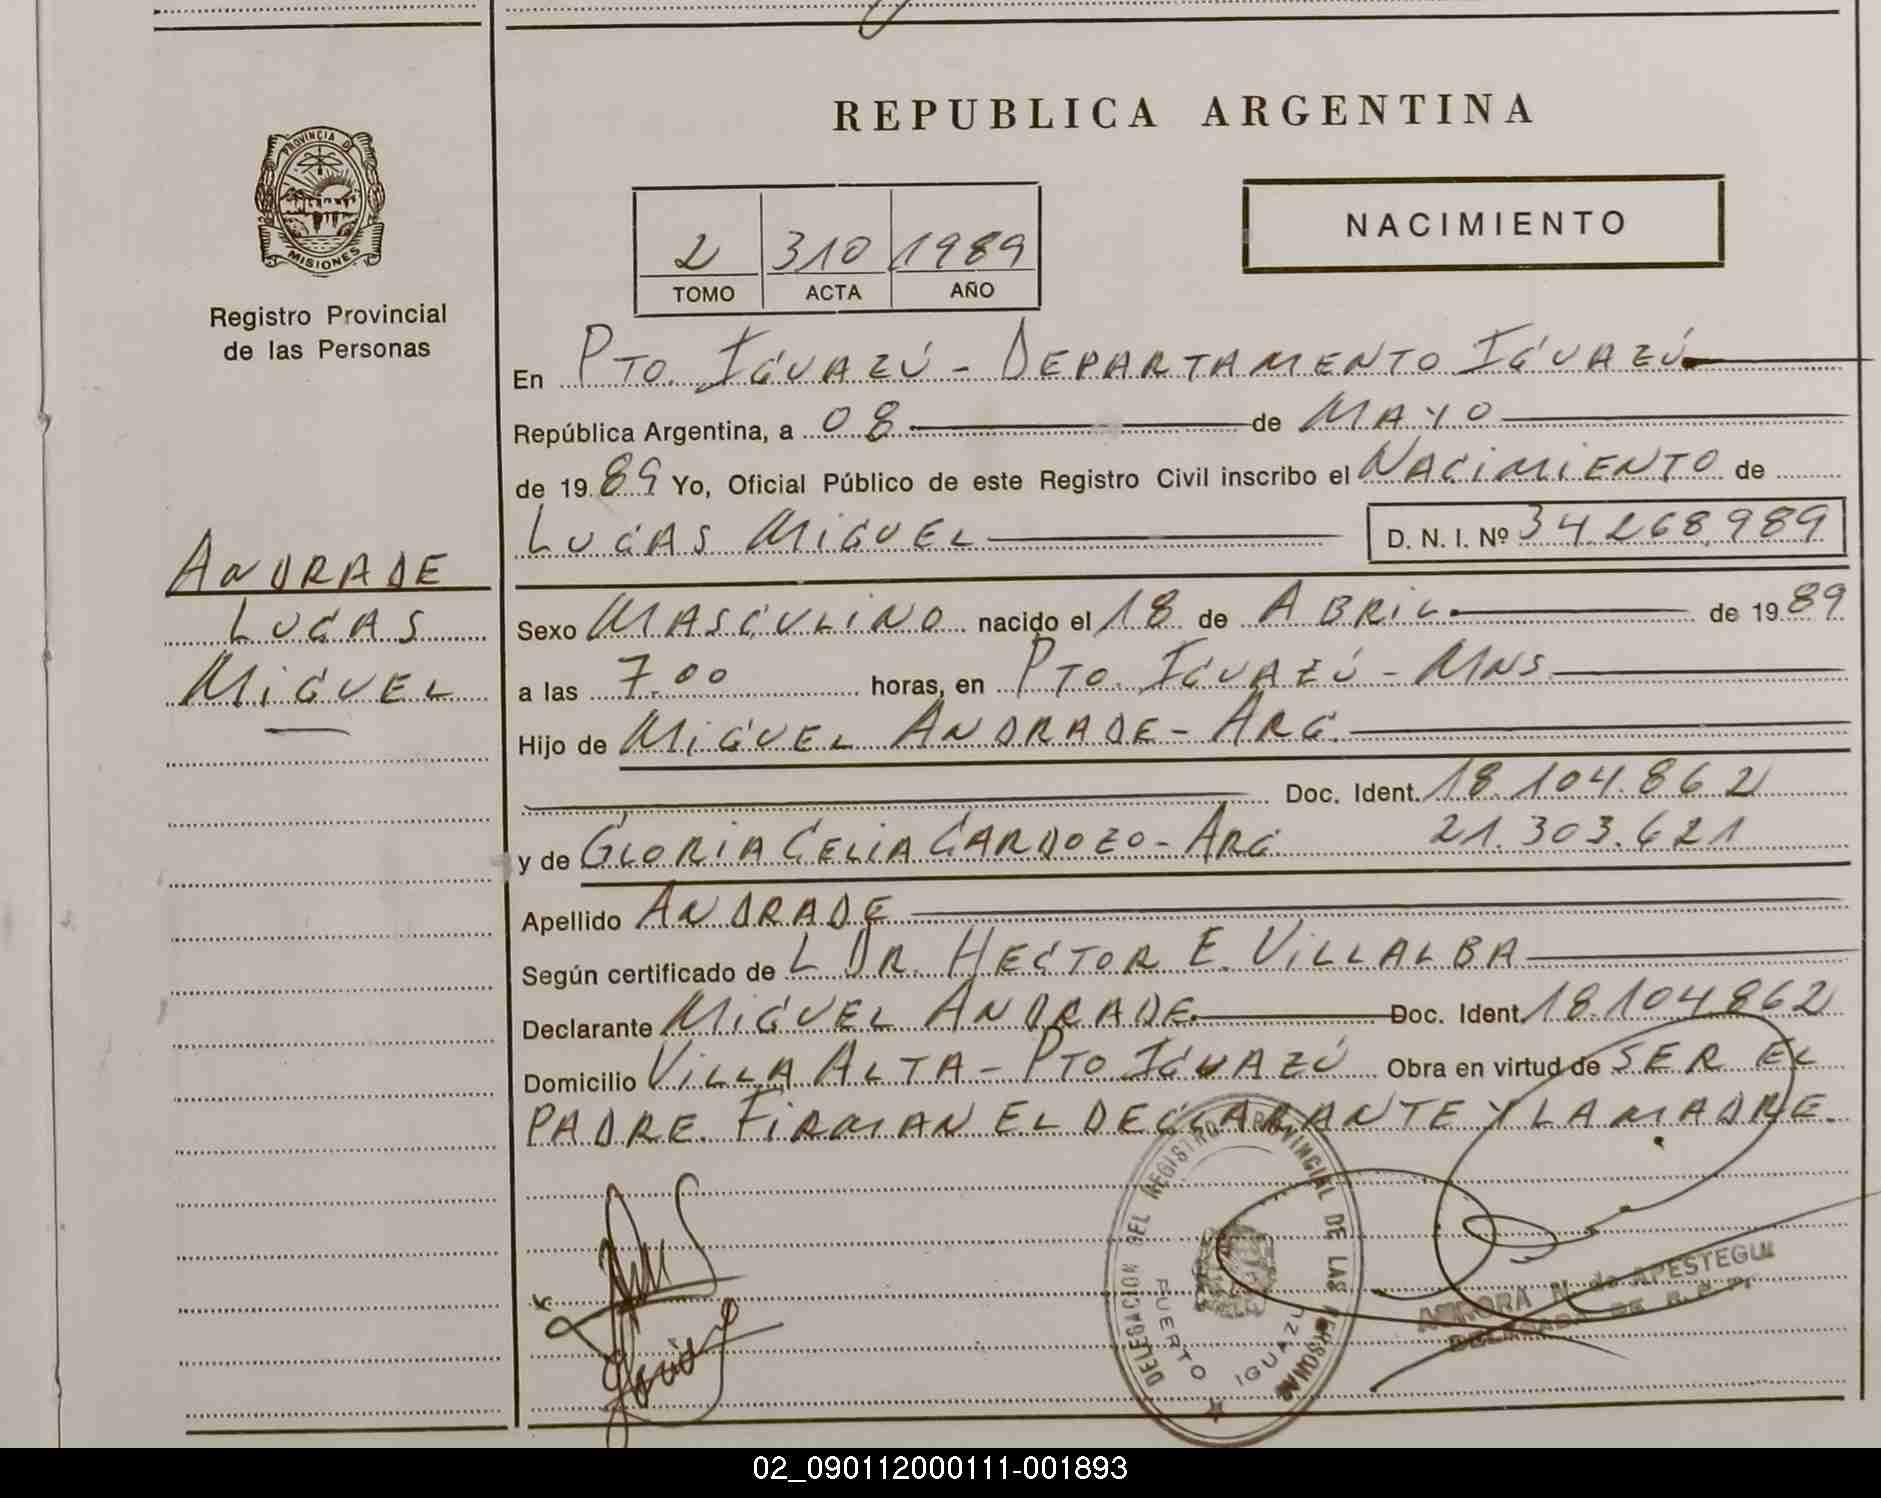 PROVINCIA DE
MISIONES
Registro Provincial
de las Personas
ANDRADE
LUCAS
MIGUEL
REPUBLICA ARGENTINA
2 310 1989
TOMO ACTA AÑO
NACIMIENTO
En PTO. IGUAZÚ - DEPARTAMENTO IGUAZÚ
República Argentina, a 08 de MAYO
de 1989 Yo, Oficial Público de este Registro Civil inscribo el NACIMIENTO de
LUCAS MIGUEL D. N. I. Nº 34.268.989
Sexo MASCULINO nacido el 18 de ABRIL de 1989
a las 7.00 horas, en PTO. IGUAZÚ - MNS
Hijo de MIGUEL ANDRADE - ARG.
Doc. Ident. 18.104.862
y de GLORIA CELIA CARDOZO - ARG 21.303.621
Apellido ANDRADE
Según certificado de L DR. HECTOR E. VILLALBA
Declarante MIGUEL ANDRADE Doc. Ident. 18.104862
Domicilio VILLA ALTA - PTO IGUAZÚ Obra en virtud de SER EL
PADRE. FIRMAN EL DECLARANTE Y LA MADRE.
DELEGACION DEL REGISTRO PROVINCIAL DE LAS PERSONAS
PUERTO IGUAZU
AURORA N. de APESTEGUI
DELEGADA DE R. P. P.
02_090112000111-001893